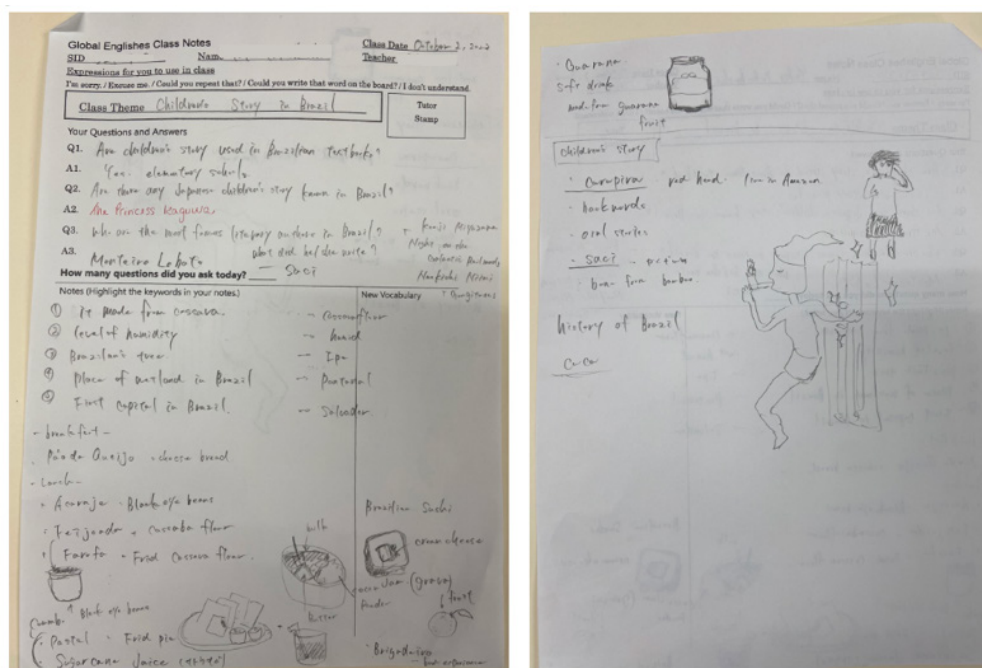 Global Englishes Class Notes
Class Date October 2, 2022
SID Nam
Teacher
Expressions for you to use in class
I'm sorry. / Excuse me. / Could you repeat that? / Could you write that word on the board? / I don't understand.
Class Theme Children's Story in Brazil
Tutor
Stamp
Your Questions and Answers
Q1. Are children's story used in Brazilian textbooks?
A1. Yes. elementary schools.
Q2. Are there any Japanese children's story known in Brazil?
A2. the Princess Kaguwa,
Q3. who are the most famous literary authors in Brazil?
what did he/she write?
A3. Monteiro Lobato
Saci
Kenji Miyazawa
Night on the
Galactic Railroads
Nankichi Niimi
Gongitsune
How many questions did you ask today?
Notes (Highlight the keywords in your notes.)
New Vocabulary
① It made from cassava. - cassava flour
② level of humidity - humid
③ Brazilian's tree. - Ipe
④ Place of wetland in Brazil - Pantanal
⑤ First capital in Brazil. - Salvador
- breakfast -
・ Pão de Queijo - cheese bread
- Lunch -
・ Acaraje - Black eye beans
・ Feijoada + cassaba flour
・ Farofa = Fried cassava flour.
milk
Brazilian Sushi
cream cheese
jam (guava)
fruit
powder
butter
Black eye beans
・ Pastel - Fried pie
・ Sugar cane Juice
・ Brigadeiro
・ Guarana
soft drink
made from guarana
fruit
children's story
・ curupira - red head. live in Amazon
・ backwards
・ oral stories
・ saci -
born from bamboo.
history of Brazil